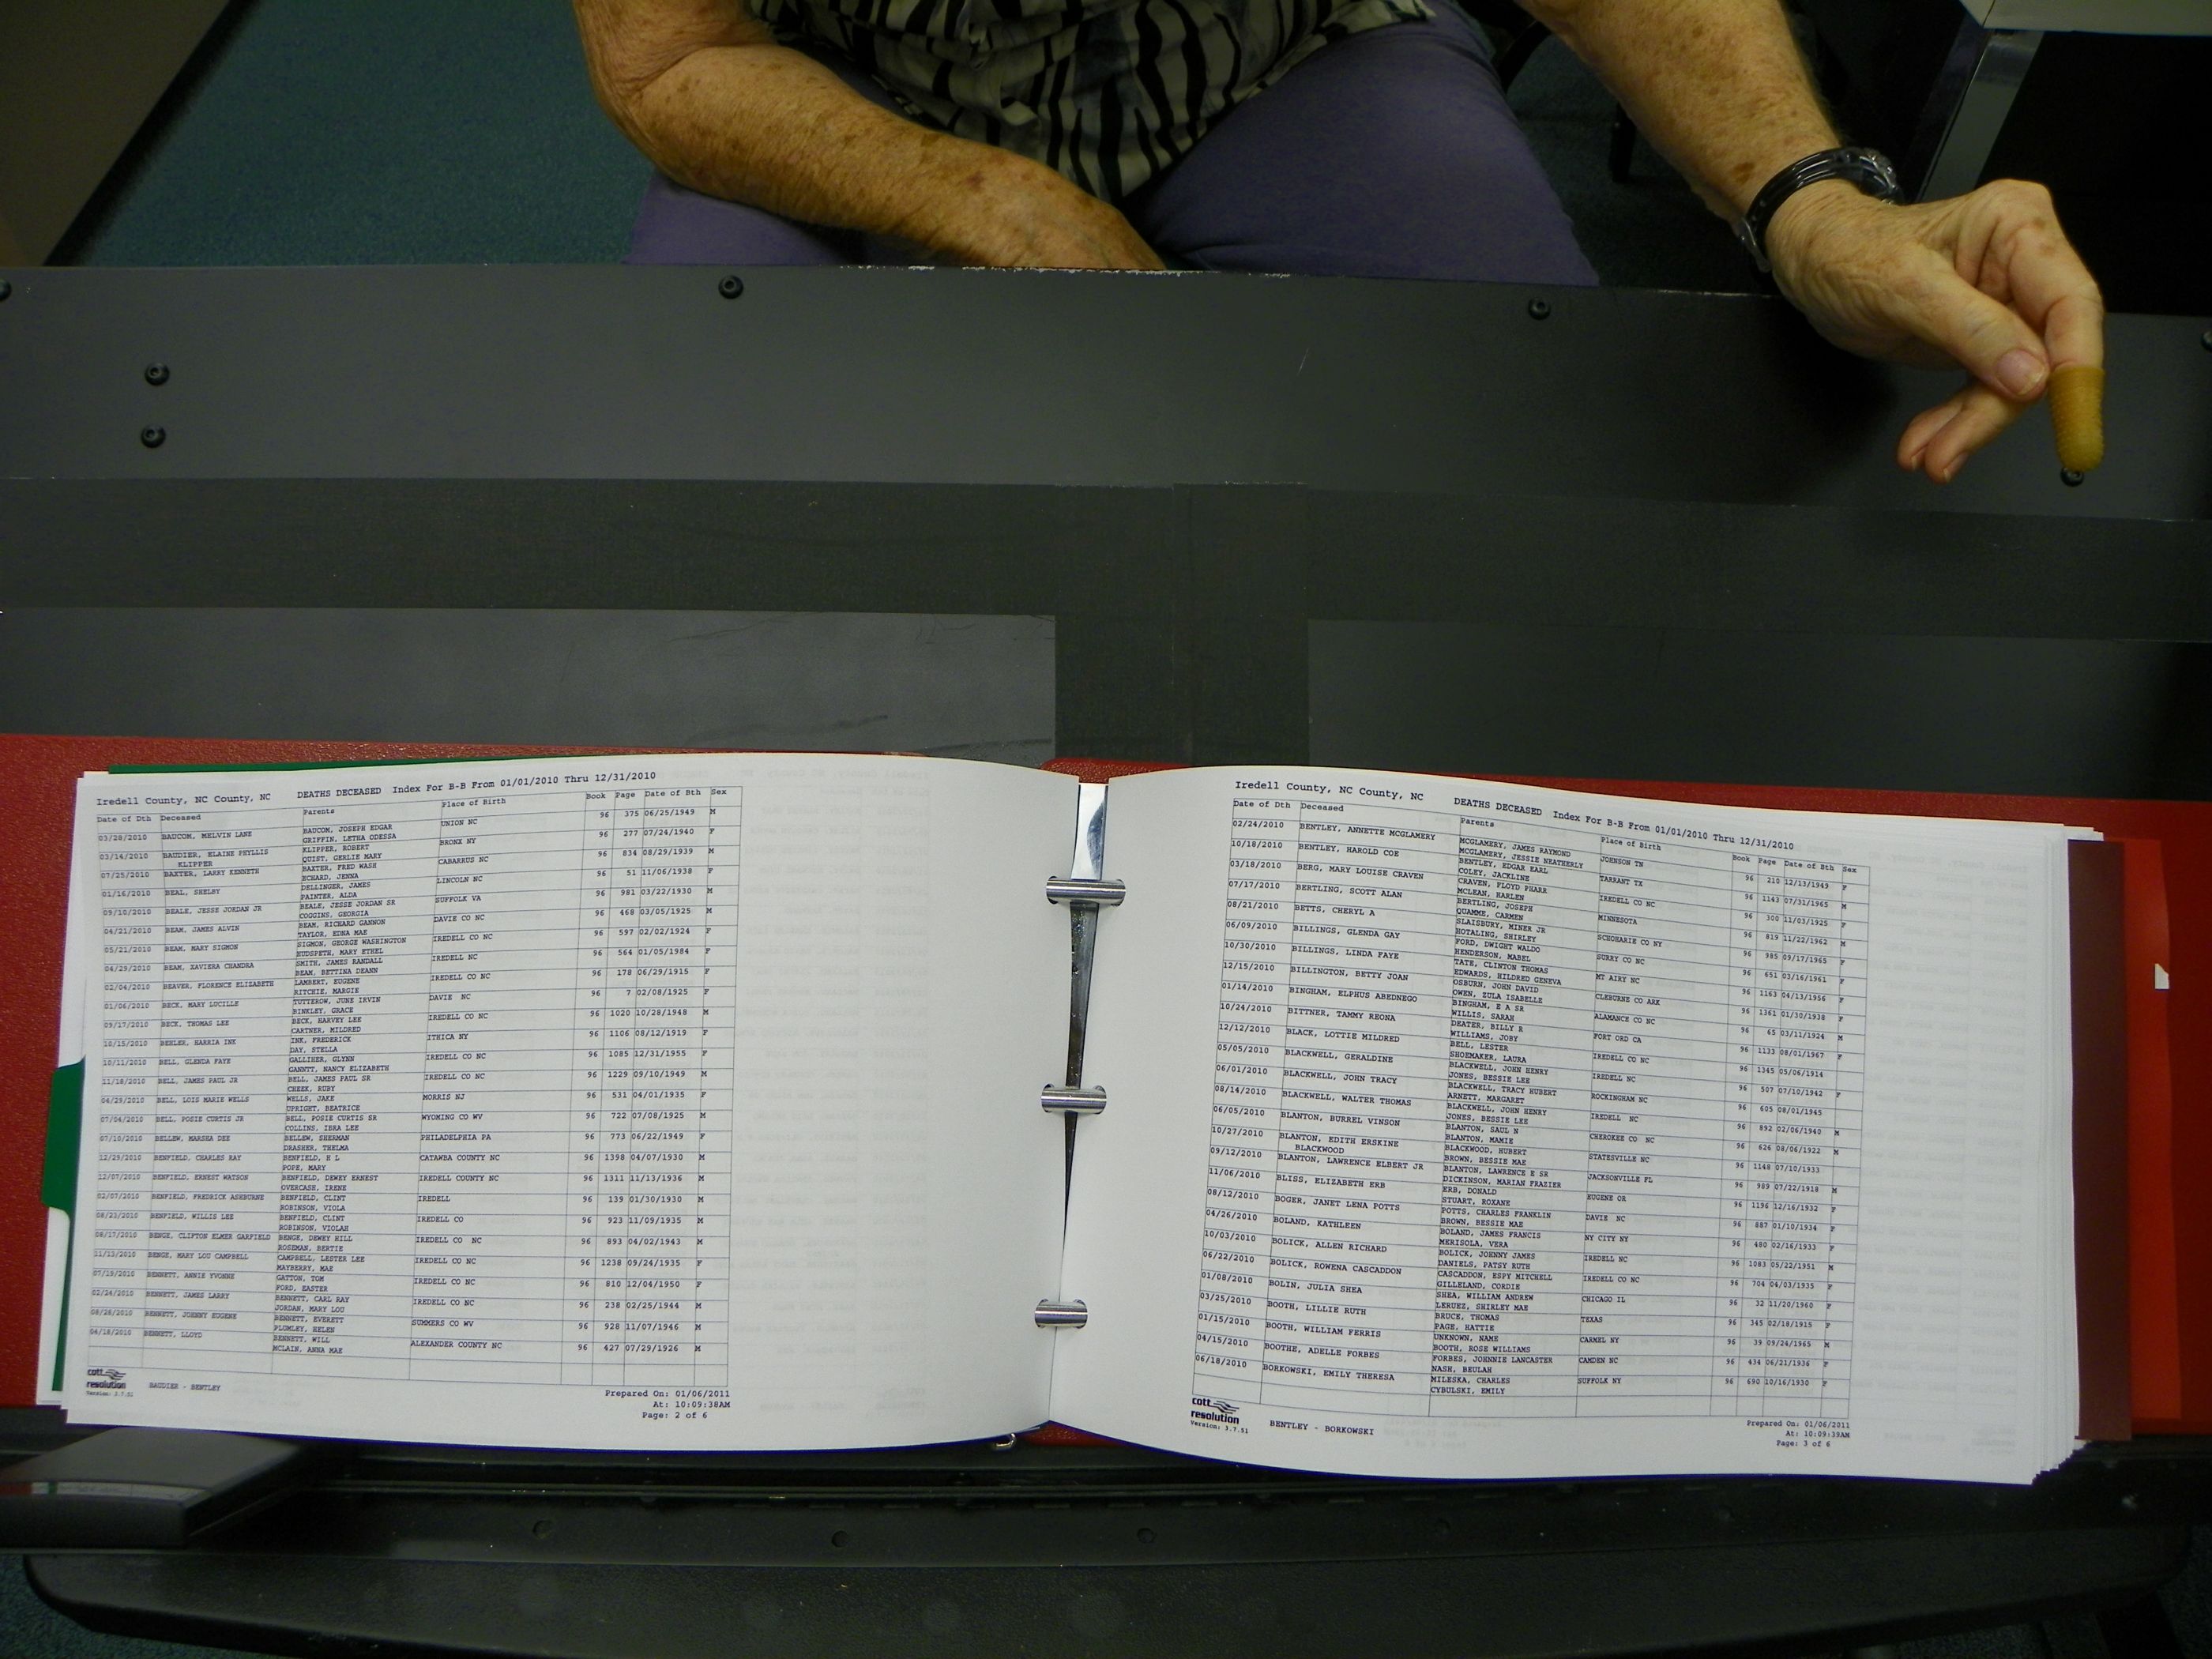 Iredell County, NC County, NC DEATHS DECEASED Index For B-B From 01/01/2010 Thru 12/31/2010
Date of Dth Deceased Parents Place of Birth Book Page Date of Bth Sex
03/28/2010 BAUCOM, MELVIN LANE BAUCOM, JOSEPH EDGAR UNION NC 96 375 06/25/1949 M
GRIFFIN, LETHA ODESSA
03/14/2010 BAUDIER, ELAINE PHYLLIS KLIPPER, ROBERT BRONX NY 96 277 07/24/1940 F
KLIPPER QUIST, GERLIE MARY
07/25/2010 BAXTER, LARRY KENNETH BAXTER, FRED WASH CABARRUS NC 96 834 08/29/1939 M
ECHARD, JENNA
01/16/2010 BEAL, SHELBY DELLINGER, JAMES LINCOLN NC 96 51 11/06/1938 F
PAINTER, ALDA
09/10/2010 BEALE, JESSE JORDAN JR BEALE, JESSE JORDAN SR SUFFOLK VA 96 981 03/22/1930 M
COGGINS, GEORGIA
04/21/2010 BEAM, JAMES ALVIN BEAM, RICHARD GANNON DAVIE CO NC 96 468 03/05/1925 M
TAYLOR, EDNA MAE
05/21/2010 BEAM, MARY SIGMON SIGMON, GEORGE WASHINGTON IREDELL CO NC 96 597 02/02/1924 F
HUDSPETH, MARY ETHEL
04/29/2010 BEAM, XAVIERA CHANDRA SMITH, JAMES RANDALL IREDELL NC 96 564 01/05/1984 F
BEAM, BETTINA DEANN
02/04/2010 BEAVER, FLORENCE ELIZABETH LAMBERT, EUGENE IREDELL CO NC 96 178 06/29/1915 F
RITCHIE, MARGIE
01/06/2010 BECK, MARY LUCILLE TUTTEROW, JUNE IRVIN DAVIE NC 96 7 02/08/1925 F
BINKLEY, GRACE
09/17/2010 BECK, THOMAS LEE BECK, HARVEY LEE IREDELL CO NC 96 1020 10/28/1948 M
CARTNER, MILDRED
10/15/2010 BEHLER, HARRIA INK INK, FREDERICK ITHICA NY 96 1106 08/12/1919 F
DAY, STELLA
10/11/2010 BELL, GLENDA FAYE GALLIHER, GLYNN IREDELL CO NC 96 1085 12/31/1955 F
GANNTT, NANCY ELIZABETH
11/18/2010 BELL, JAMES PAUL JR BELL, JAMES PAUL SR IREDELL CO NC 96 1229 09/10/1949 M
CHEEK, RUBY
04/29/2010 BELL, LOIS MARIE WELLS WELLS, JAKE MORRIS NJ 96 531 04/01/1935 F
UPRIGHT, BEATRICE
07/04/2010 BELL, POSIE CURTIS JR BELL, POSIE CURTIS SR WYOMING CO WV 96 722 07/08/1925 M
COLLINS, IBRA LEE
07/10/2010 BELLEW, MARSHA DEE BELLEW, SHERMAN PHILADELPHIA PA 96 773 06/22/1949 F
DRASHER, THELMA
12/29/2010 BENFIELD, CHARLES RAY BENFIELD, H L CATAWBA COUNTY NC 96 1398 04/07/1930 M
POPE, MARY
12/07/2010 BENFIELD, ERNEST WATSON BENFIELD, DEWEY ERNEST IREDELL COUNTY NC 96 1311 11/13/1936 M
OVERCASH, IRENE
02/07/2010 BENFIELD, FREDRICK ASHBURNE BENFIELD, CLINT IREDELL 96 139 01/30/1930 M
ROBINSON, VIOLA
08/23/2010 BENFIELD, WILLIS LEE BENFIELD, CLINT IREDELL CO 96 923 11/09/1935 M
ROBINSON, VIOLAH
08/17/2010 BENGE, CLIFTON ELMER GARFIELD BENGE, DEWEY HILL IREDELL CO NC 96 893 04/02/1943 M
ROSEMAN, BERTIE
11/13/2010 BENGE, MARY LOU CAMPBELL CAMPBELL, LESTER LEE IREDELL CO NC 96 1238 09/24/1935 F
MAYBERRY, MAE
07/19/2010 BENNETT, ANNIE YVONNE GATTON, TOM IREDELL CO NC 96 810 12/04/1950 F
FORD, EASTER
02/24/2010 BENNETT, JAMES LARRY BENNETT, CARL RAY IREDELL CO NC 96 238 02/25/1944 M
JORDAN, MARY LOU
08/26/2010 BENNETT, JOHNNY EUGENE BENNETT, EVERETT SUMMERS CO WV 96 928 11/07/1946 M
PLUMLEY, HELEN
04/18/2010 BENNETT, LLOYD BENNETT, WILL ALEXANDER COUNTY NC 96 427 07/29/1926 M
MCLAIN, ANNA MAE
cott
resolution
Version: 3.7.51
BAUDIER - BENTLEY
Prepared On: 01/06/2011
At: 10:09:38AM
Page: 2 of 6
Iredell County, NC County, NC DEATHS DECEASED Index For B-B From 01/01/2010 Thru 12/31/2010
Date of Dth Deceased Parents Place of Birth Book Page Date of Bth Sex
02/24/2010 BENTLEY, ANNETTE MCGLAMERY MCGLAMERY, JAMES RAYMOND JOHNSON TN 96 210 12/13/1949 F
MCGLAMERY, JESSIE NEATHERLY
10/18/2010 BENTLEY, HAROLD COE BENTLEY, EDGAR EARL TARRANT TX 96 1143 07/31/1965 M
COLEY, JACKLINE
03/18/2010 BERG, MARY LOUISE CRAVEN CRAVEN, FLOYD PHARR IREDELL CO NC 96 300 11/03/1925 F
MCLEAN, HARLEN
07/17/2010 BERTLING, SCOTT ALAN BERTLING, JOSEPH MINNESOTA 96 819 11/22/1962 M
QUAMME, CARMEN
08/21/2010 BETTS, CHERYL A SLAISBURY, MINER JR SCHOHARIE CO NY 96 985 09/17/1965 F
HOTALING, SHIRLEY
06/09/2010 BILLINGS, GLENDA GAY FORD, DWIGHT WALDO SURRY CO NC 96 651 03/16/1961 F
HENDERSON, MABEL
10/30/2010 BILLINGS, LINDA FAYE TATE, CLINTON THOMAS MT AIRY NC 96 1163 04/13/1956 F
EDWARDS, HILDRED GENEVA
12/15/2010 BILLINGTON, BETTY JOAN OSBURN, JOHN DAVID CLEBURNE CO ARK 96 1361 01/30/1938 F
OWEN, ZULA ISABELLE
01/14/2010 BINGHAM, ELPHUS ABEDNEGO BINGHAM, E A SR ALAMANCE CO NC 96 65 03/11/1924 M
WILLIS, SARAH
10/24/2010 BITTNER, TAMMY REONA DEATER, BILLY R FORT ORD CA 96 1133 08/01/1967 F
WILLIAMS, JOBY
12/12/2010 BLACK, LOTTIE MILDRED BELL, LESTER IREDELL CO NC 96 1345 05/06/1914
SHOEMAKER, LAURA
05/05/2010 BLACKWELL, GERALDINE BLACKWELL, JOHN HENRY IREDELL NC 96 507 07/10/1942 F
JONES, BESSIE LEE
06/01/2010 BLACKWELL, JOHN TRACY BLACKWELL, TRACY HUBERT ROCKINGHAM NC 96 605 08/01/1945
ARNETT, MARGARET
08/14/2010 BLACKWELL, WALTER THOMAS BLACKWELL, JOHN HENRY IREDELL NC 96 892 02/06/1940 M
JONES, BESSIE LEE
06/05/2010 BLANTON, BURREL VINSON BLANTON, SAUL N CHEROKEE CO NC 96 626 08/06/1922 M
BLANTON, MAMIE
10/27/2010 BLANTON, EDITH ERSKINE BLACKWOOD, HUBERT STATESVILLE NC 96 1148 07/10/1933
BLACKWOOD BROWN, BESSIE MAE
09/12/2010 BLANTON, LAWRENCE ELBERT JR BLANTON, LAWRENCE E SR JACKSONVILLE FL 96 989 07/22/1918 M
DICKINSON, MARIAN FRAZIER
11/06/2010 BLISS, ELIZABETH ERB ERB, DONALD EUGENE OR 96 1196 12/16/1932 F
STUART, ROXANE
08/12/2010 BOGER, JANET LENA POTTS POTTS, CHARLES FRANKLIN DAVIE NC 96 887 01/10/1934 F
BROWN, BESSIE MAE
04/26/2010 BOLAND, KATHLEEN BOLAND, JAMES FRANCIS NY CITY NY 96 480 02/16/1933 F
MERISOLA, VERA
10/03/2010 BOLICK, ALLEN RICHARD BOLICK, JOHNNY JAMES IREDELL NC 96 1083 05/22/1951 M
DANIELS, PATSY RUTH
06/22/2010 BOLICK, ROWENA CASCADDON CASCADDON, ESPY MITCHELL IREDELL CO NC 96 704 04/03/1935 F
GILLELAND, CORDIE
01/08/2010 BOLIN, JULIA SHEA SHEA, WILLIAM ANDREW CHICAGO IL 96 32 11/20/1960 F
LERUEZ, SHIRLEY MAE
03/25/2010 BOOTH, LILLIE RUTH BRUCE, THOMAS TEXAS 96 345 02/18/1915 F
PAGE, HATTIE
01/15/2010 BOOTH, WILLIAM FERRIS UNKNOWN, NAME CARMEL NY 96 39 09/24/1965 M
BOOTH, ROSE WILLIAMS
04/15/2010 BOOTHE, ADELLE FORBES FORBES, JOHNNIE LANCASTER CAMDEN NC 96 434 06/21/1936 F
NASH, BEULAH
06/18/2010 BORKOWSKI, EMILY THERESA MILESKA, CHARLES SUFFOLK NY 96 690 10/16/1930 F
CYBULSKI, EMILY
cott
resolution
Version: 3.7.51
BENTLEY - BORKOWSKI
Prepared On: 01/06/2011
At: 10:09:39AM
Page: 3 of 6